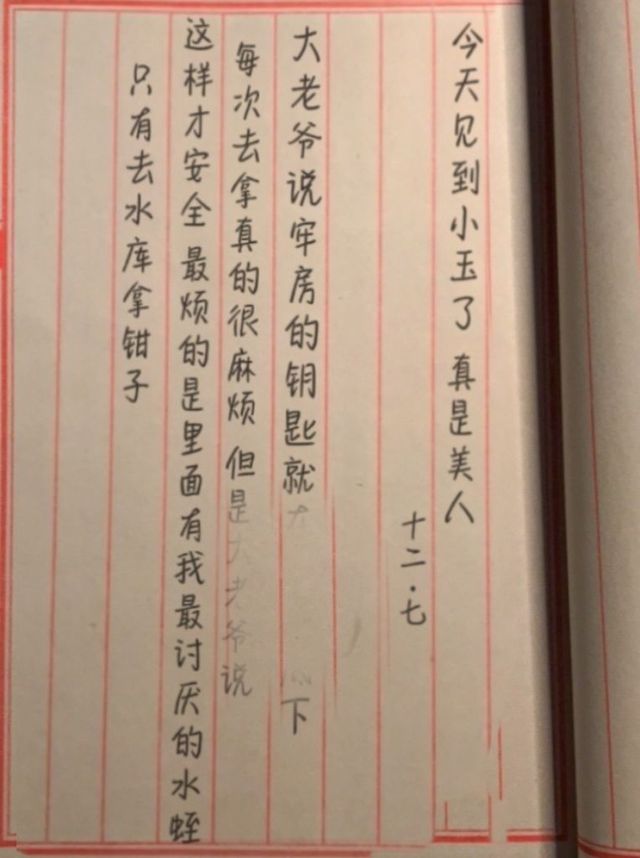 今天见到小玉了 真是美人
十二·七
大老爷说牢房的钥匙就 下
每次去拿真的很麻烦 但是大老爷说
这样才安全 最烦的是里面有我最讨厌的水蛭
只有去水库拿钳子